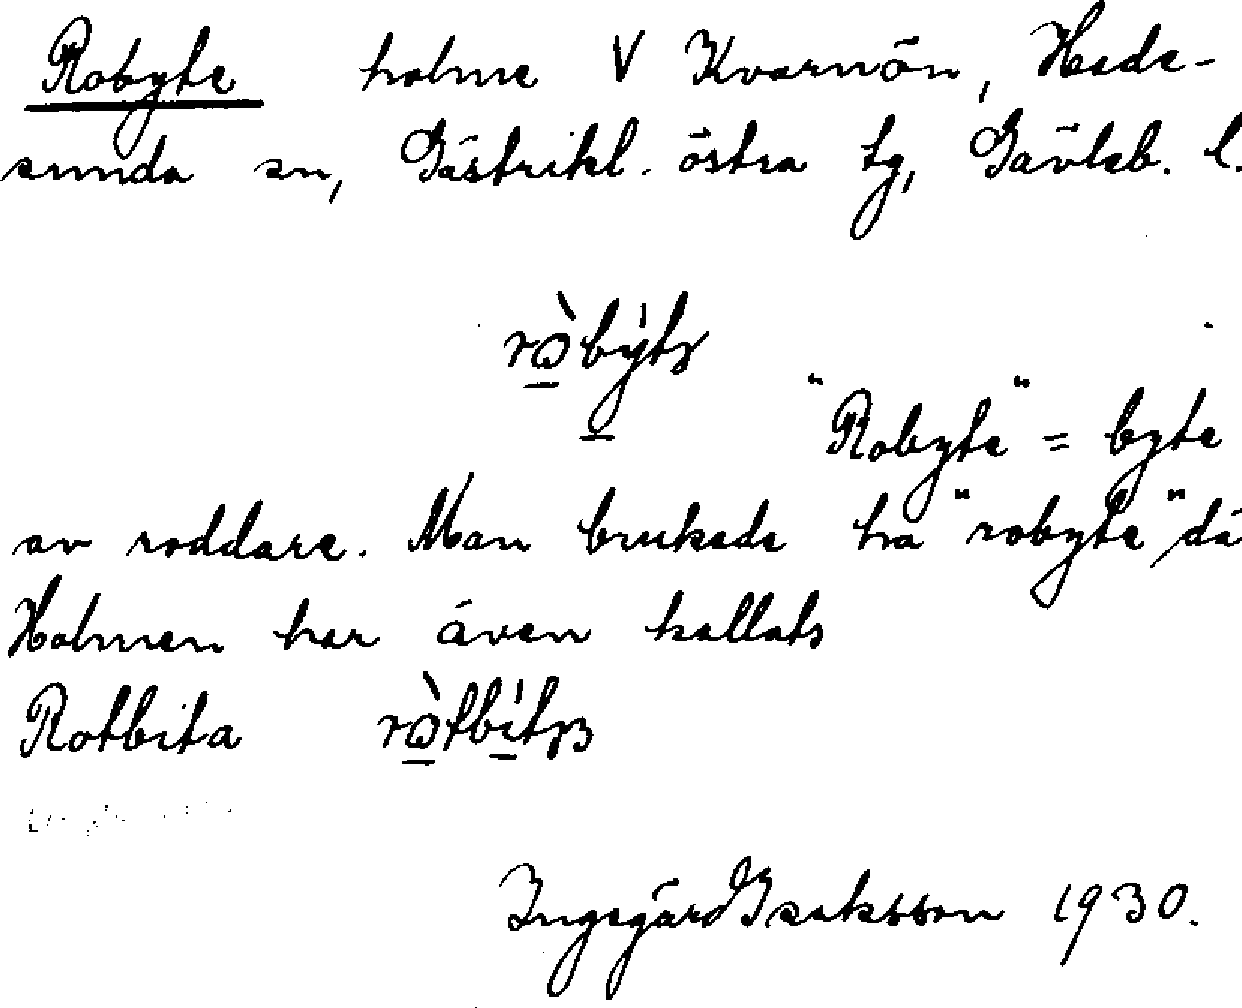 Robyte holme V Kvarnön, Hede-
sunda sn, Gästrikl. östra tg, Gävleb. l.
"Robyte" = byte
av roddare. Man brukade ha "robyte" då
Holmen har även kallats
Rotbita
Ingegärd Isaksson 1930.